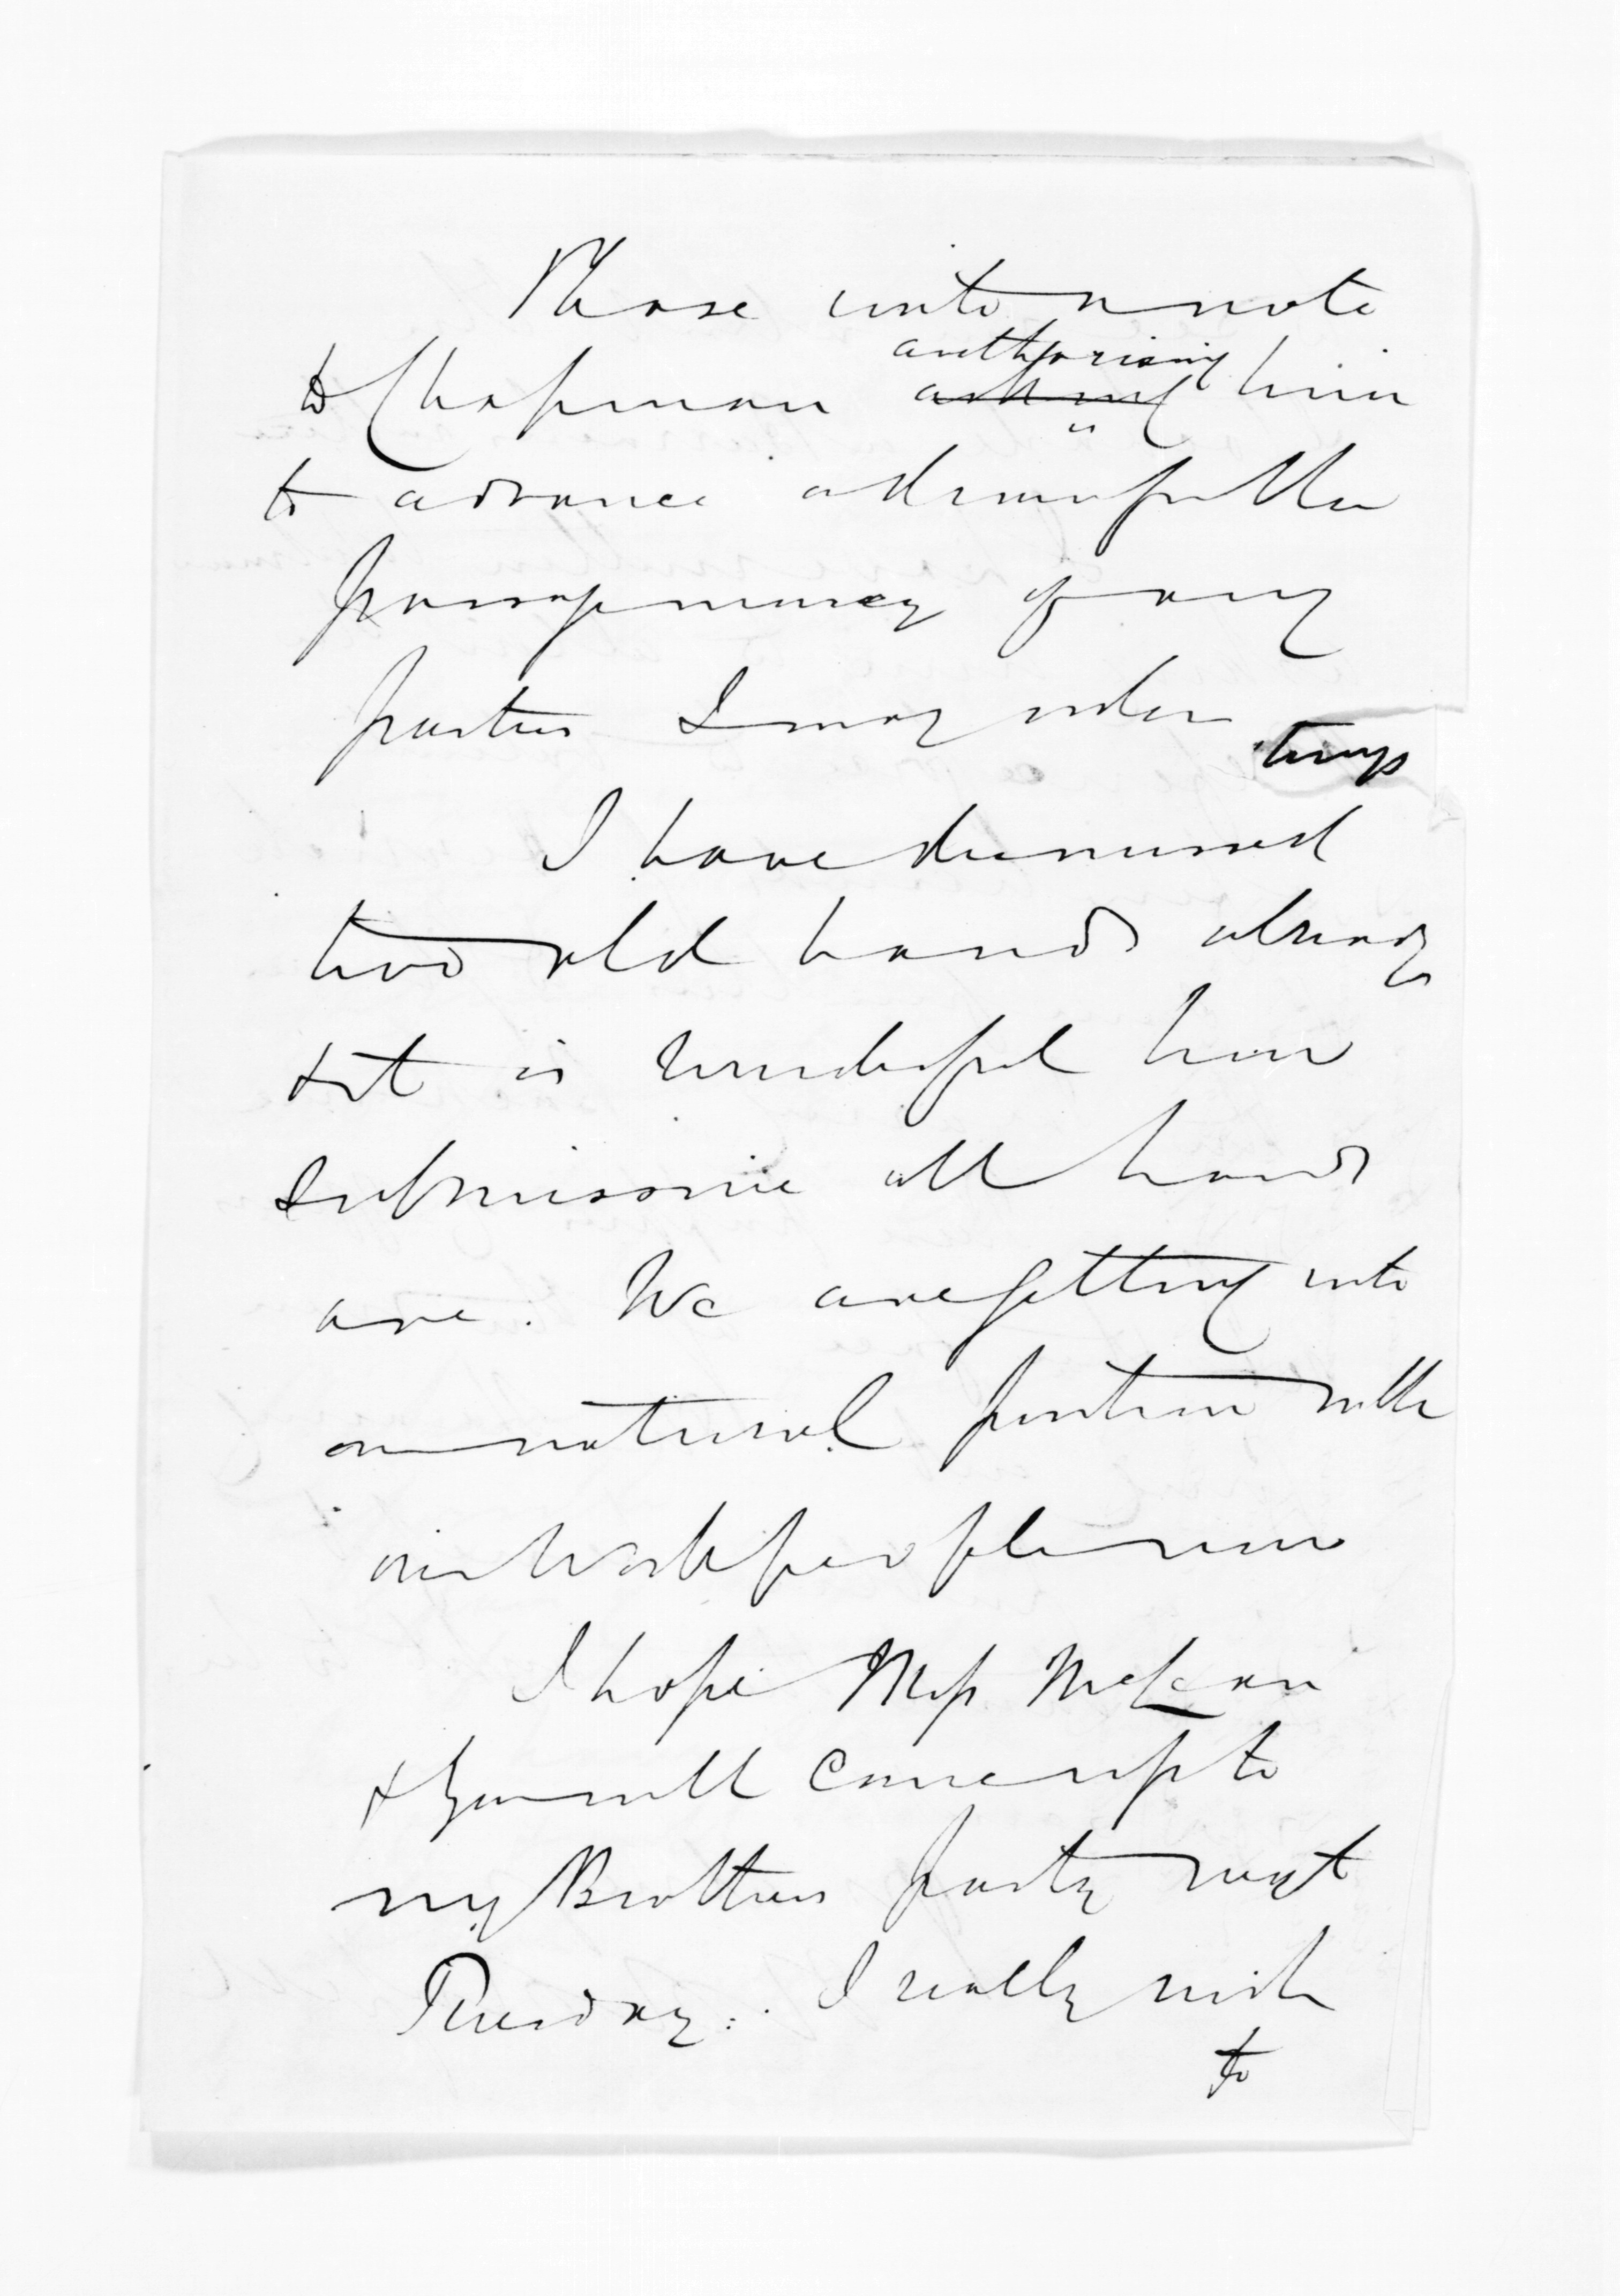 Please write a note
to Chapman authorising asking him
to advance admin of the
passage money of any
parties I may order
I have dismissed
two old hands already
& it is wonderful how
submissive all hands
are. We are getting into
our natural position with
our Workpeople now
I hope Miss McLean
& you will come up to
my Brothers party next
Tuesday. I really wish
to